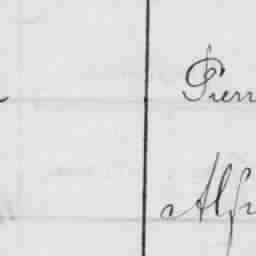 Pierr
Alfr